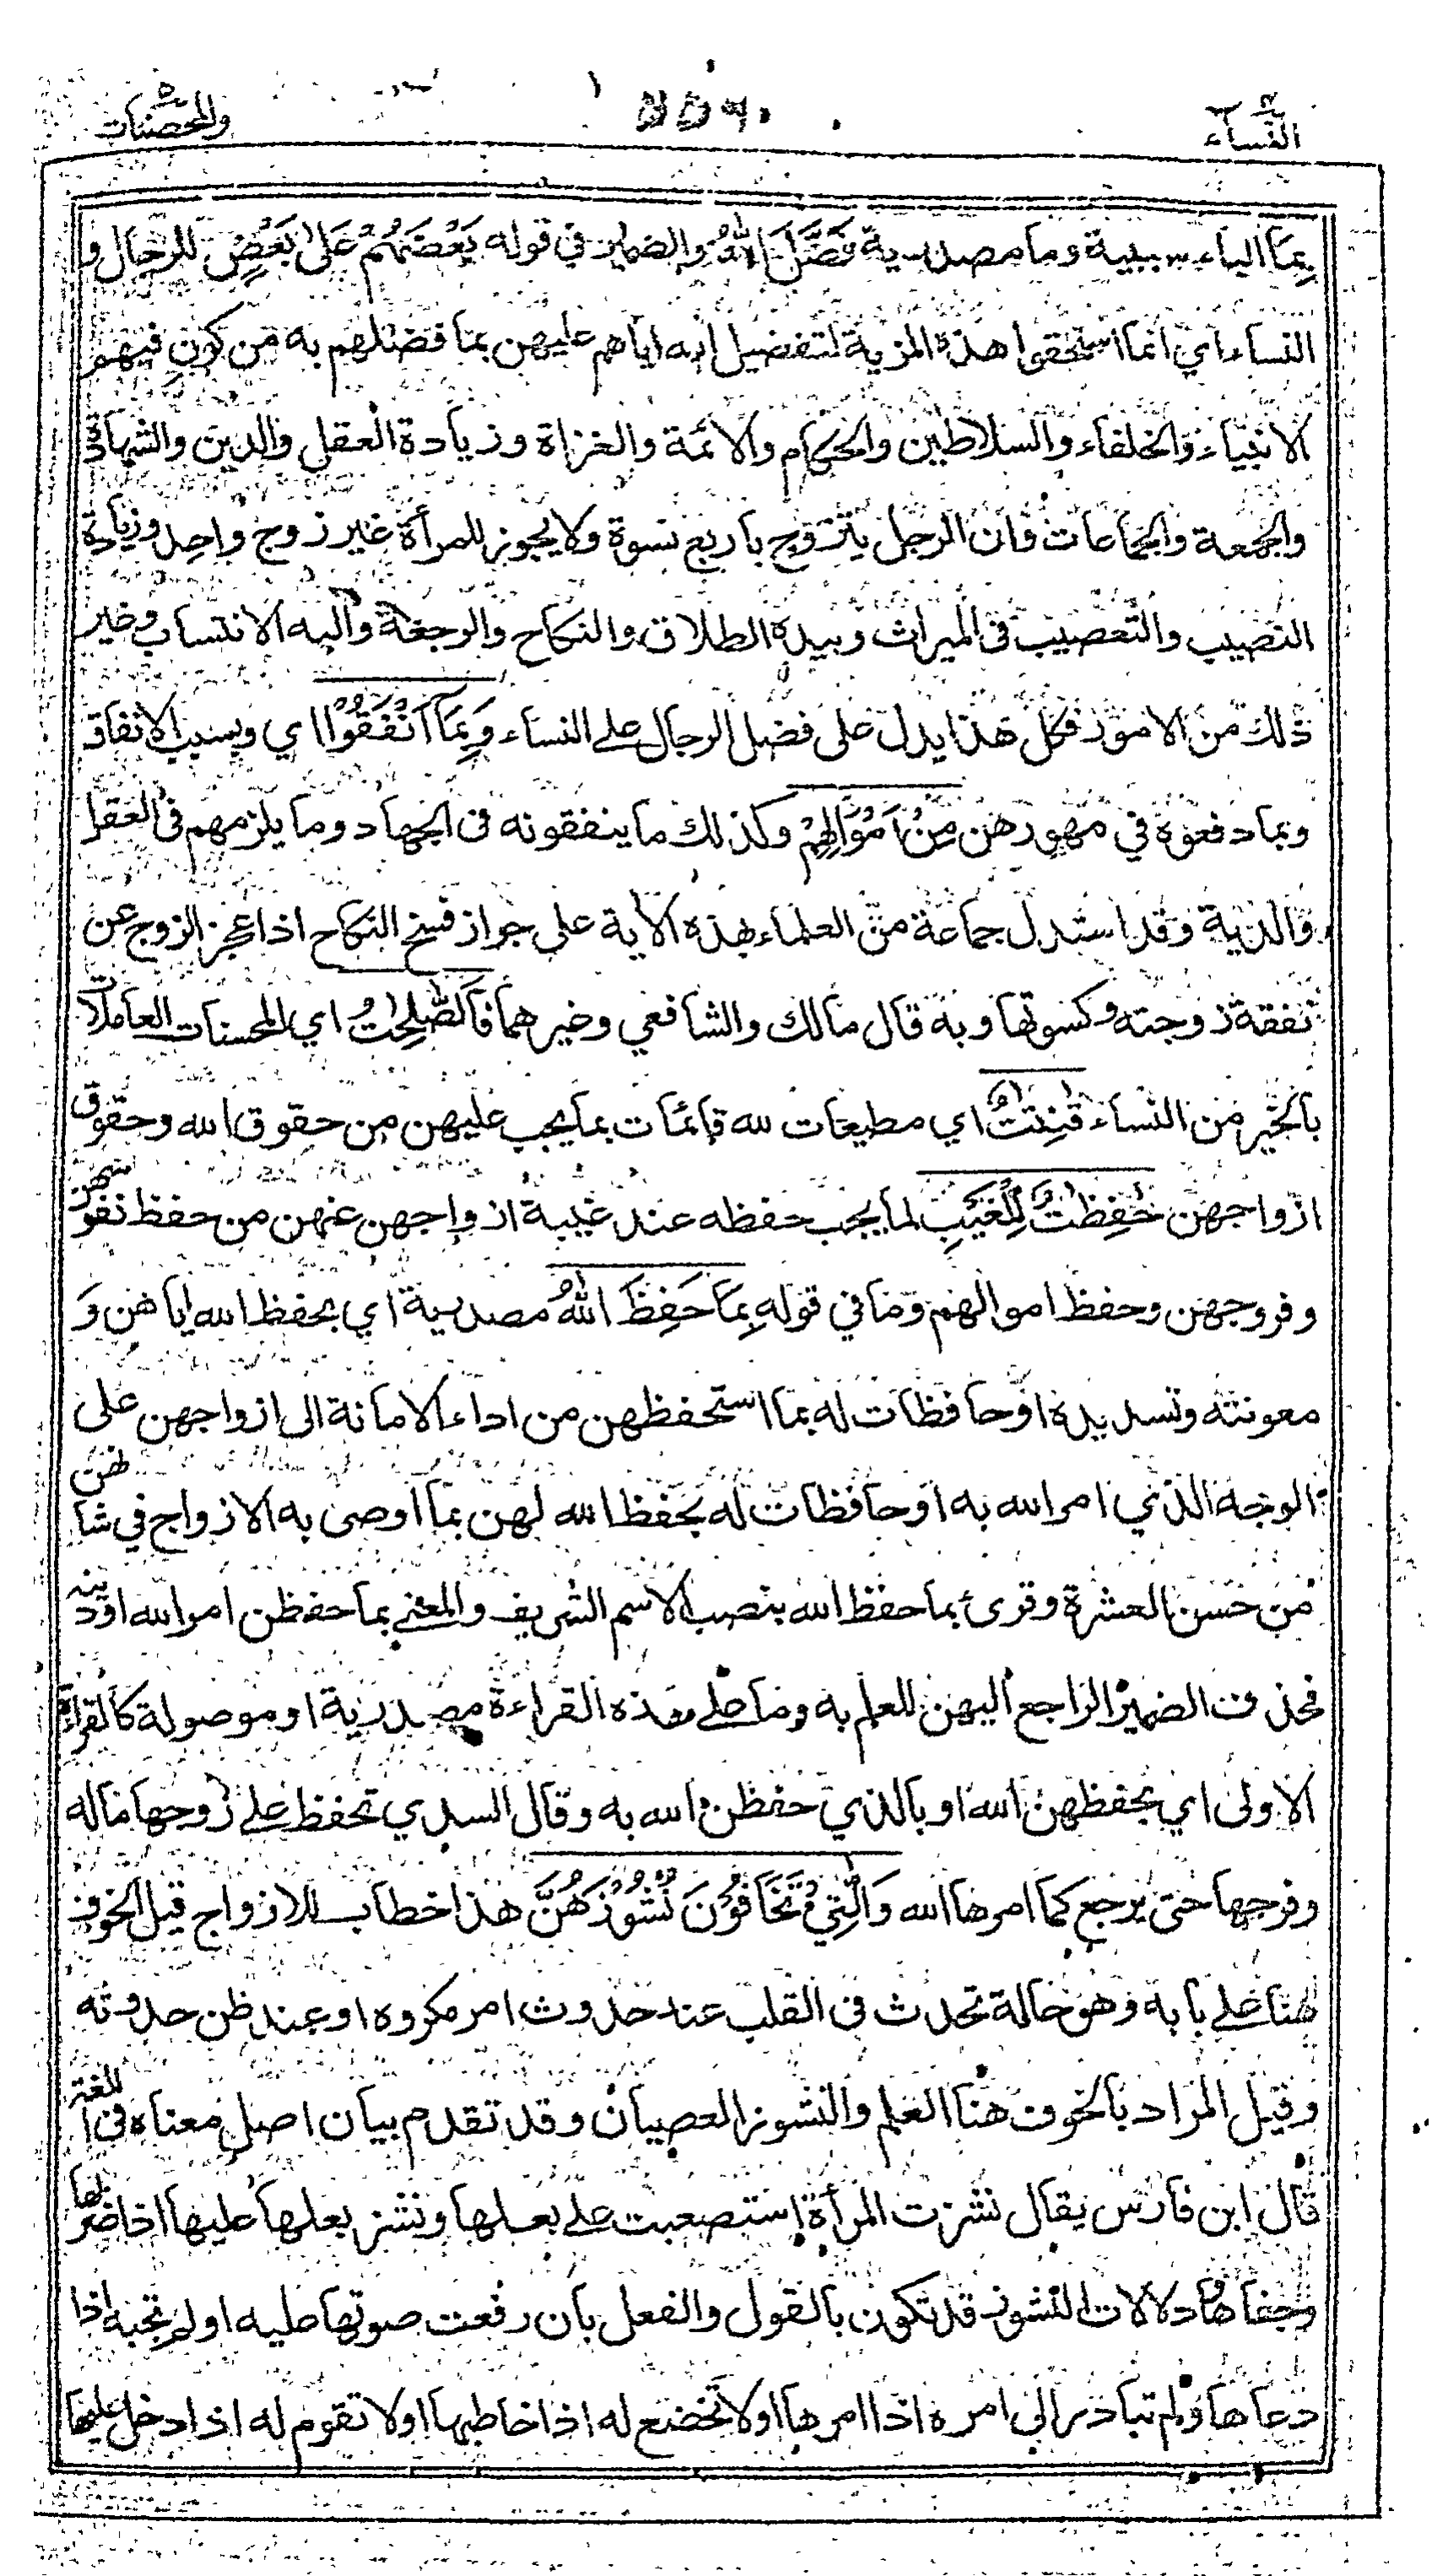 النساء ٤
والمحصنات ٥
بِمَا الباء سببية وما مصدرية فَضَّلَ اللّٰهُ والضمير في قوله بَعْضَهُمْ عَلٰى بَعْضٍ للرجال و
النساء اي انما استحقوا هذه المزية لتفضيل الله اياهم عليهن بما فضلهم به من كون فيهم
الانبياء والخلفاء والسلاطين والحكام والائمة والغزاة وزيادة العقل والدين والشهادة
والجمعة والجماعات وان الرجل يتزوج باربع نسوة ولا يجوز للمرأة غير زوج واحد وزيادة
النصيب والتعصيب في الميراث وبيده الطلاق والنكاح والرجعة واليه الانتساب وغير
ذلك من الامور فكل هذا يدل على فضل الرجال على النساء وَبِمَآ اَنْفَقُوْا اي وبسبب الانفاق
وبما دفعوه في مهورهن مِنْ اَمْوَالِهِمْ وكذلك ما ينفقونه في الجهاد وما يلزمهم في العقل
والدية وقد استدل جماعة من العلماء بهذه الاية على جواز فسخ النكاح اذا عجز الزوج عن
نفقة زوجته وكسوتها وبه قال مالك والشافعي وغيرهما فَالصّٰلِحٰتُ اي المحسنات العاملات
بالخير من النساء قٰنِتٰتٌ اي مطيعات لله قائمات بما يجب عليهن من حقوق الله وحقوق
ازواجهن حٰفِظٰتٌ لِّلْغَيْبِ لما يجب حفظه عند غيبة ازواجهن عنهن من حفظ نفوسهن
وفروجهن وحفظ اموالهم وما في قوله بِمَا حَفِظَ اللّٰهُ مصدرية اي بحفظ الله اياهن و
معونته وتسديده او حافظات له بما استحفظهن من اداء الامانة الى ازواجهن على
الوجه الذي امر الله به او حافظات له بحفظ الله لهن بما اوصى به الازواج في شانهن
من حسن العشرة وقرئ بما حفظ الله بنصب الاسم الشريف والمعنى بما حفظن امر الله او دينه
فحذف الضمير الراجع اليهن للعلم به وما على هذه القراءة مصدرية او موصولة كالقراءة
الاولى اي بحفظهن الله او بالذي حفظن الله به وقال السدي تحفظ على زوجها ماله
وفرجها حتى يرجع كما امرها الله وَالّٰتِيْ تَخَافُوْنَ نُشُوْزَهُنَّ هذا خطاب للازواج قيل الخوف
هنا على بابه وهو حالة تحدث في القلب عند حدوث امر مكروه او عند ظن حدوثه
وقيل المراد بالخوف هنا العلم والنشوز العصيان وقد تقدم بيان اصل معناه في اللغة
قال ابن فارس يقال نشزت المرأة استصعبت على بعلها ونشز بعلها عليها اذا ضربها
وجفاها ودلالات النشوز قد تكون بالقول والفعل بان رفعت صوتها عليه او لم تجبه اذا
دعاها ولم تبادر الى امره اذا امرها او لا تخضع له اذا خاطبها او لا تقوم له اذا دخل عليها